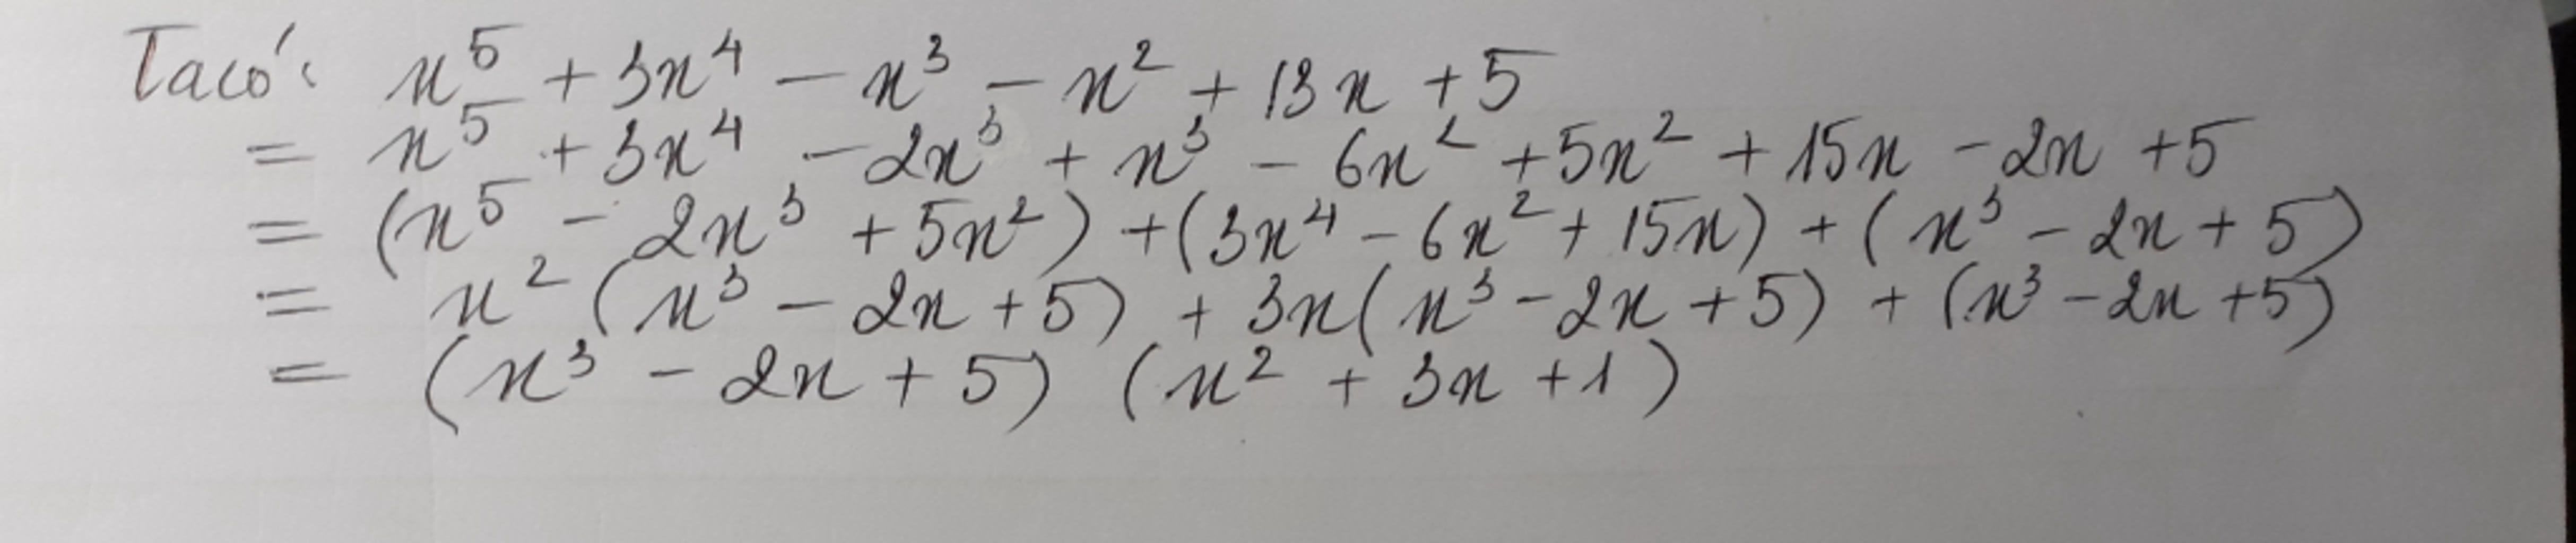 Ta có: x⁵ + 3x⁴ - x³ - x² + 13x + 5
= x⁵ + 3x⁴ - 2x³ + x³ - 6x² + 5x² + 15x - 2x + 5
= (x⁵ - 2x³ + 5x²) + (3x⁴ - 6x² + 15x) + (x³ - 2x + 5)
= x² (x³ - 2x + 5) + 3x(x³ - 2x + 5) + (x³ - 2x + 5)
= (x³ - 2x + 5) (x² + 3x + 1)